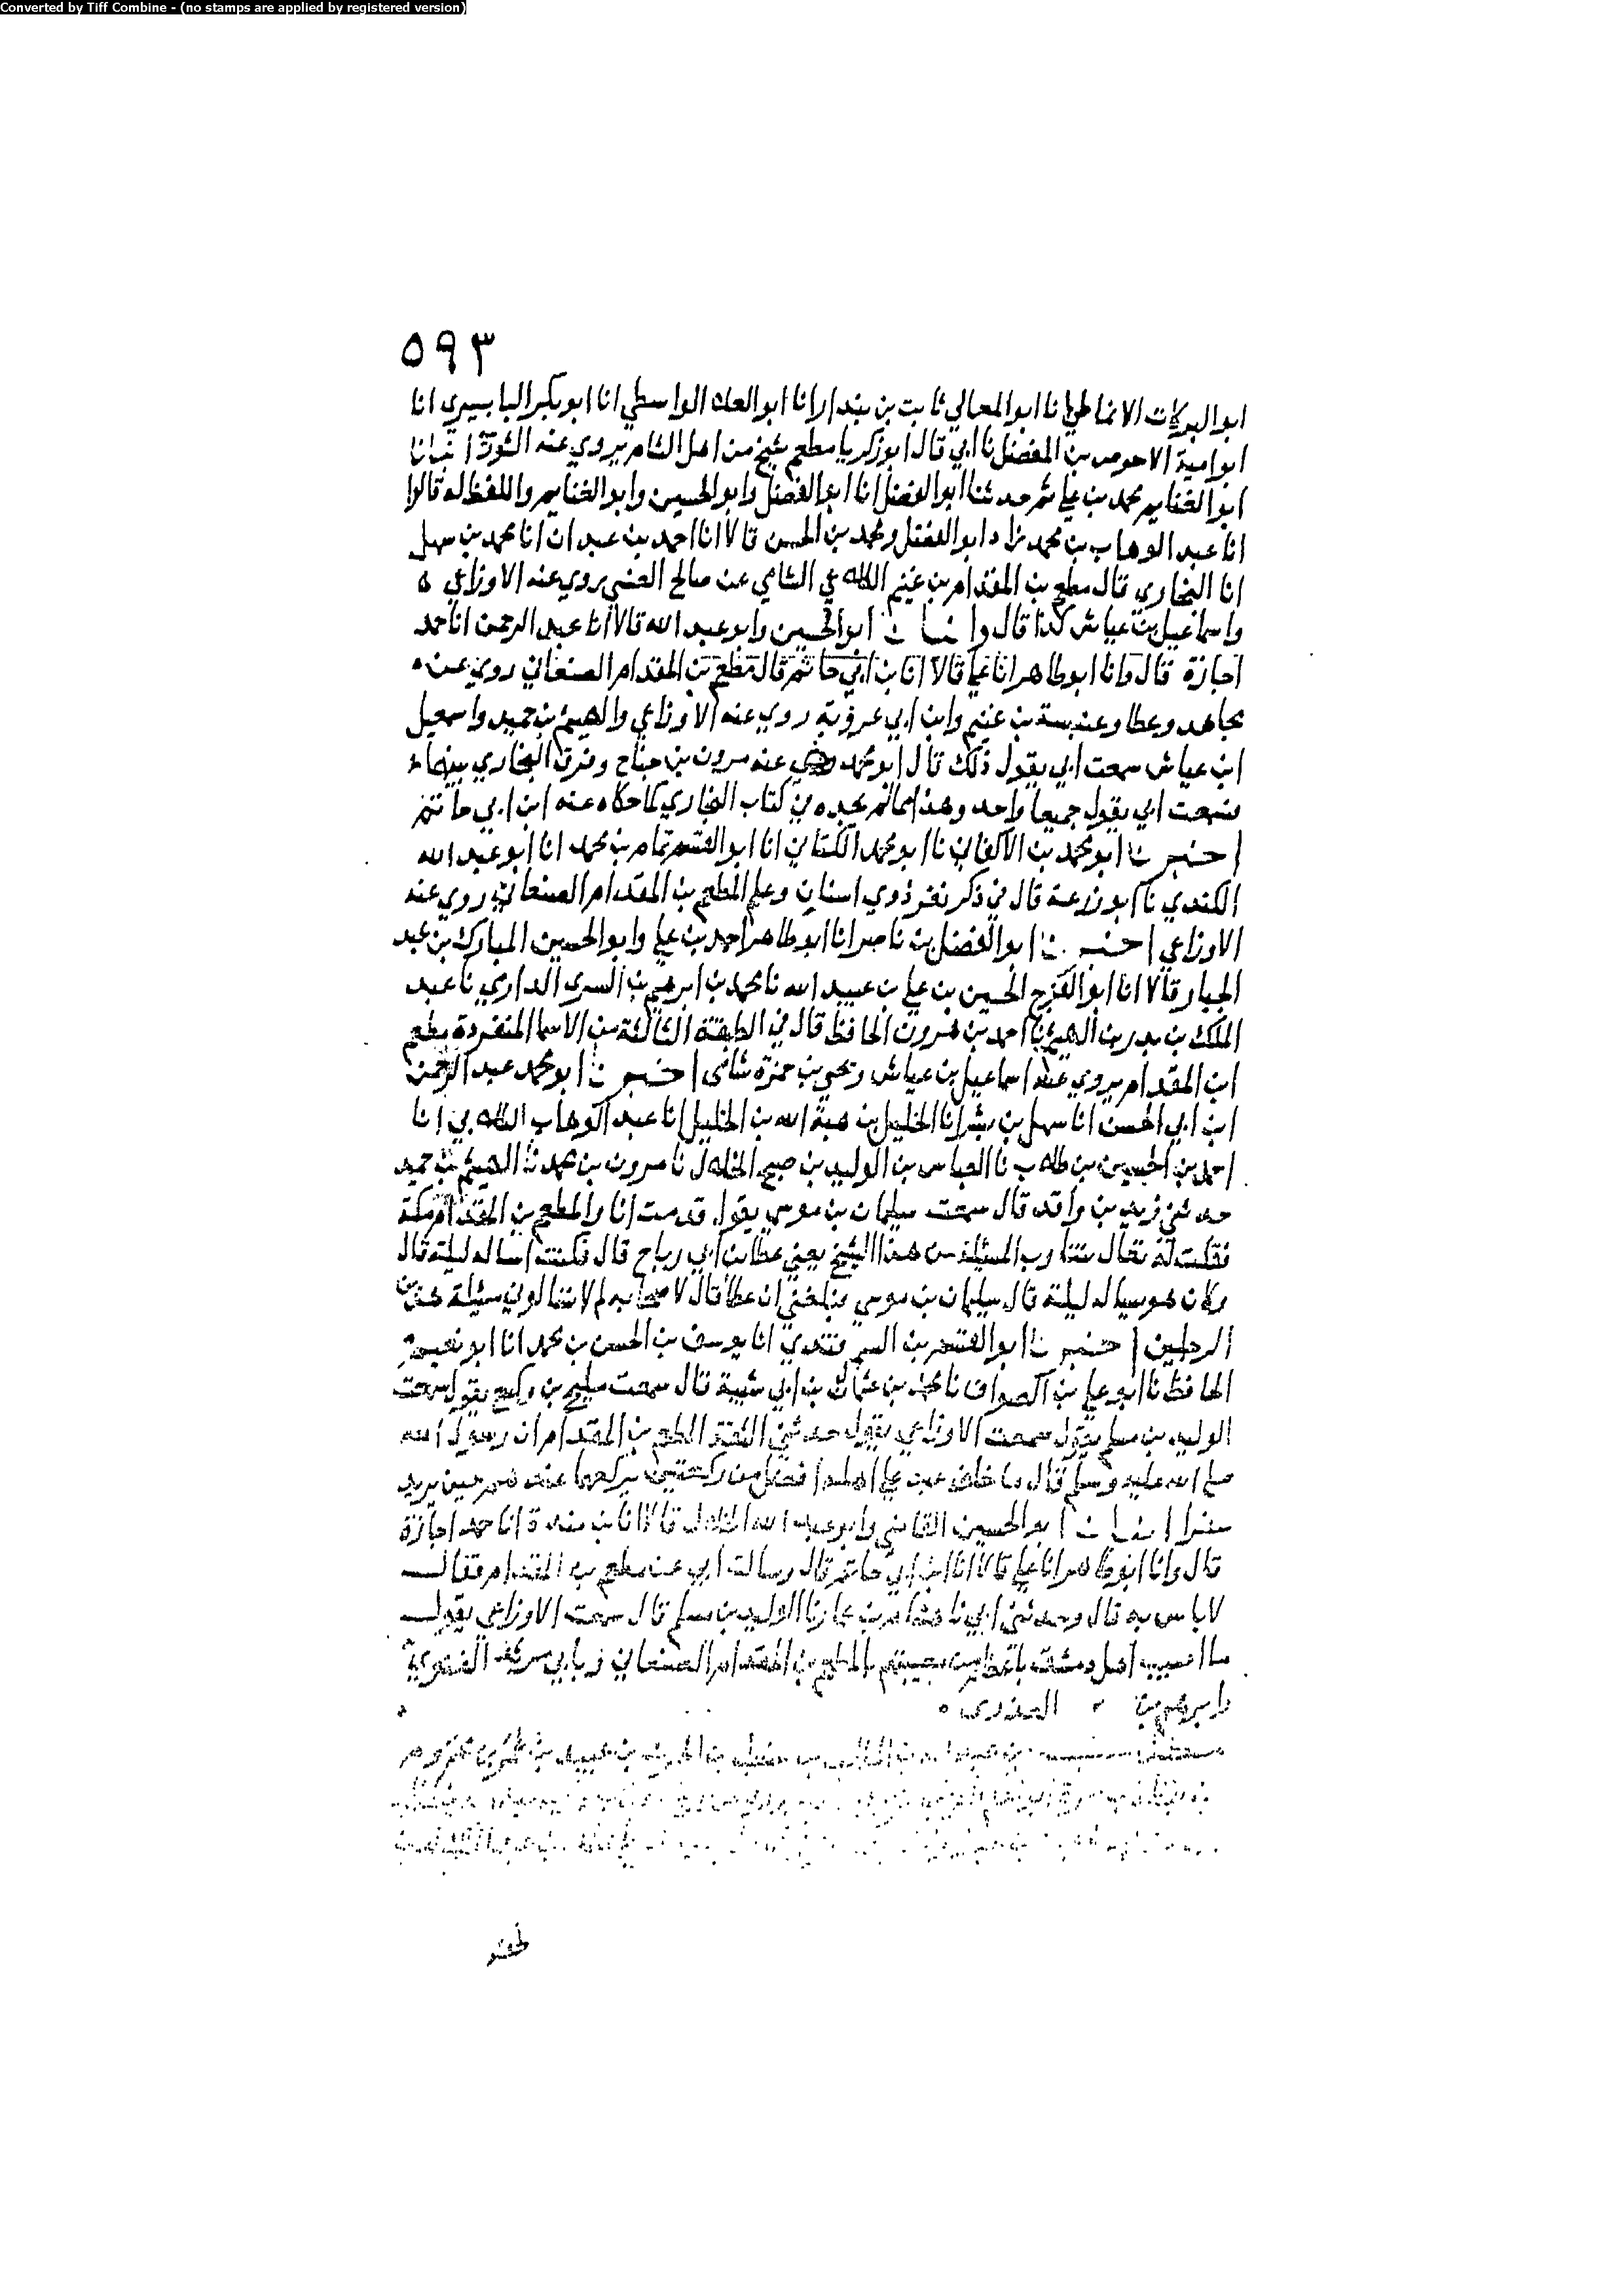 Converted by Tiff Combine - (no stamps are applied by registered version)
٥٩٣
ابو البركات الانماطي انا ابو المعالي ثابت بن بندار انا ابو العلا الواسطي انا ابو بكر البابسيري انا
ابو امية الاحوص بن المفضل نا ابي قال ابو زكريا مطعم شيخ من اهل الشام يروي عنه الثوري انبانا
ابو الغنايم محمد بن علي ثم حدثنا ابو الفضل انا ابو الفضل وابو الحسين وابو الغنايم واللفظ له قالوا
انا عبد الوهاب بن محمد زاد ابو الفضل ومحمد بن الحسن قالا انا احمد بن عبدان انا محمد بن سهل
انا البخاري قال مطعم بن المقدام بن غنيم الكلاعي الشامي عن صالح العنسي روي عنه الاوزاعي ه
واسماعيل بن عياش كذا قال وانبانا ابو الحسين وابو عبد الله قالا انا عبد الرحمن انا حمد
اجازة قال وانا ابو طاهر انا علي قالا انا بن ابي حاتم قال مطعم بن المقدام الصنعاني روي عن ه
مجاهد وعطا وعنبسة بن غنيم وابن ابي عروبة روي عنه الاوزاعي والهيثم بن حميد واسمعيل
ابن عياش سمعت ابي يقول ذلك قال ابو محمد روي عنه مرون بن جناح وفرق البخاري بينهما
فسمعت ابي يقول جميعا واحد وهذا مما لم يجده من كتاب البخاري كما حكاه عنه ابن ابي حاتم
اخبرنا ابو محمد بن الاكفاني نا ابو محمد الكتاني انا ابو القسم تمام بن محمد انا ابو عبد الله
الكندي نا ابو زرعة قال في ذكر نفر ذوي اسنان وعلم المطعم بن المقدام الصنعاني روي عنه
الاوزاعي اخبرنا ابو الفضل بن ناصر انا ابو طاهر احمد بن علي وابو الحسين المبارك بن عبد
الجبار قالا انا ابو الفرج الحسين بن علي بن عبيد الله نا محمد بن ابرهيم بن السري الداري نا عبد
الملك بن بدر بن الهيثم نا احمد بن هرون الحافظ قال في الطبقة الثالثة من الاسما المنفردة مطعم
ابن المقدام يروي عنه اسماعيل بن عياش ويحيى بن حمزة شامى اخبرنا ابو محمد عبد الرحمن
ابن ابي الحسن انا سهل بن بشر انا الخليل بن هبة الله بن الخليل انا عبد الوهاب الكلابي انا
احمد بن الحسين بن طلاب نا العباس بن الوليد بن صبح الخلال نا مرون بن محمد نا الهيثم بن حميد
حدثني زيد بن واقد قال سمعت سليمان بن موسي يقول قدمت انا والمطعم بن المقدام مكة
فقلت له تعال نتناوب المسيلة من هذا الشيخ يعني عطا بن ابي رباح قال فكنت اساله ليلة قال
وكان هو يساله ليلة قال سليمان بن موسي فبلغني ان عطا قال لاصحابه لم لا تسالوني مسئلة هذين
الرجلين اخبرنا ابو القسم بن السمرقندي انا يوسف بن الحسن بن محمد انا ابو نعيم
الحافظ نا ابو علي بن الصواف نا محمد بن عثمان بن ابي شيبة قال سمعت مليح بن وكيع يقول سمعت
الوليد بن مسلم يقول سمعت الاوزاعي يقول حدثني الثقة المطعم بن المقدام ان رسول الله
صلى الله عليه وسلم قال ما خلف عبد علي اهله افضل من ركعتين يركعهما عندهم حين يريد
سفرا انبانا ابو الحسين القاضي وابو عبد الله الخلال قالا انا بن مندة انا حمد اجازة
قال وانا ابو طاهر انا علي قالا انا ابن ابي حاتم قال وسالت ابي عن مطعم بن المقدام فقال
لا باس به قال وحدثني ابي نا هشام بن عمار نا الوليد بن مسلم قال سمعت الاوزاعي يقول
ما اصيب اهل دمشق باعظم من مصيبتهم بالمطعم بن المقدام الصنعاني وبابي مرثد الغنوي
وابرهيم بن العذرى ه